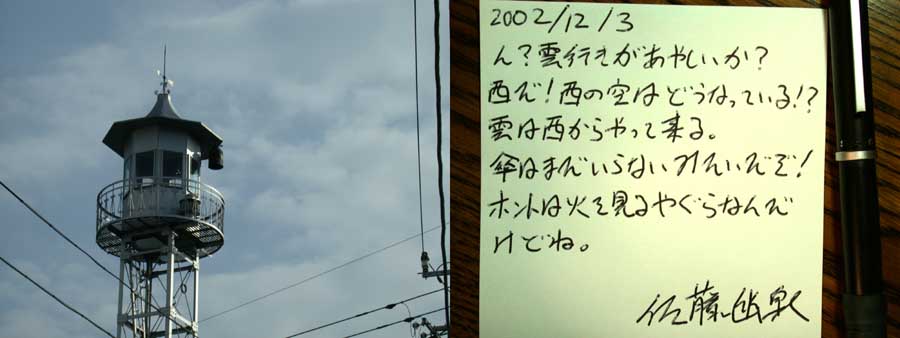 2002/12/3
ん？雲行きがあやしいか？
西だ！西の空はどうなっている！？
雲は西からやって来る。
傘はまだいらないみたいだぞ！
ホントは火を見るやぐらなんだ
けどね。
佐藤